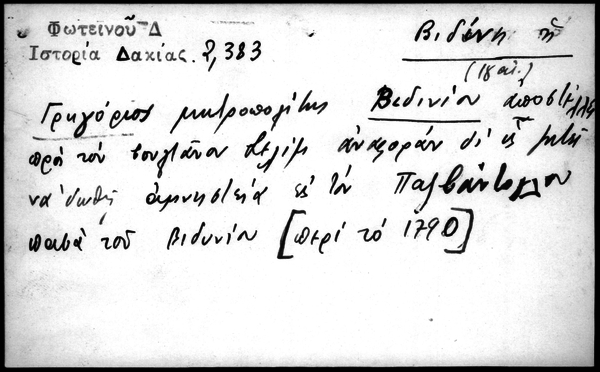 Φωτεινοῦ Δ
Ἱστορία Δακίας 2, 383
Βιδύνη ἡ
(18 αἰ.)
Γρηγόριος μητροπολίτης Βιδινίου ἀποστέλλει
πρὸς τὸν σουλτάνον Σελὶμ ἀναφορὰν δι' ἧς ζητεῖ
νὰ δωθῆ ἀμνηστεία εἰς τὸν Πασβάντογλου
πασᾶ τοῦ Βιδυνίου [περὶ τὸ 1790]